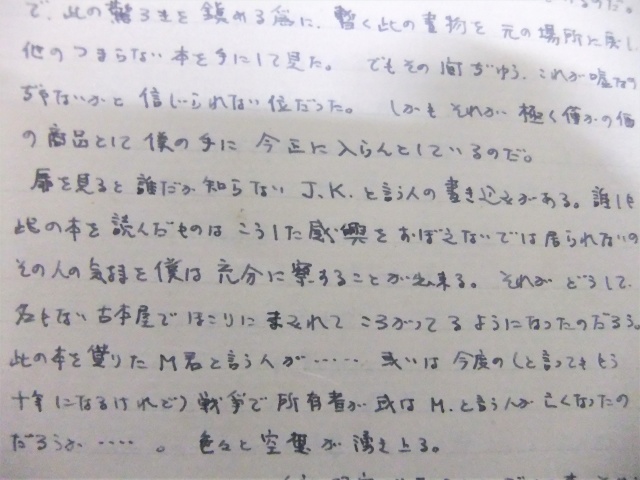 で、此の驚ろきを鎮める為に、暫く此の書物を元の場所に戻し
他のつまらない本を手にして見た。 でもその間ぢゆう、これが嘘なの
ぢやないかと信じられない位だった。 しかもそれが極く僅かの価
の商品として僕の手に今正に入らんとしているのだ。
扉を見ると誰だか知らない J.K. と言う人の書き込みがある。誰しも
此の本を読んだものはこうした感興をおぼえないでは居られないの
その人の気持を僕は充分に察することが出来る。 それがどうして、
名もない古本屋でほこりにまみれてころがってるようになったのだろう。
此の本を貸りた M君と言う人が…… 或いは今度の(と言ってももう
十年になるけれど) 戦争で所有者が或は M. と言う人が亡くなったの
だろうか……。 色々と空想が湧き上る。